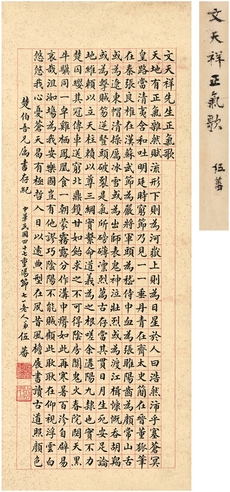 文天祥正氣歌
伍蕃
文天祥先生正氣歌
天地有正氣雜然賦流形下則為河嶽上則為日星於人曰浩然沛乎塞蒼冥
皇路當清夷含和吐明廷時窮節乃見一一垂丹青在齊太史簡在晉董狐筆
在秦張良椎在漢蘇武節為嚴將軍頭為嵇侍中血為張睢陽齒為顏常山舌
或為遼東帽清操厲冰雪或為出師表鬼神泣壯烈或為渡江楫慷慨吞胡羯
或為擊賊笏逆豎頭破裂是氣所磅礴凜烈萬古存當其貫日月生死安足論
地維賴以立天柱賴以尊三綱實繫命道義為之根嗟余遘陽九隸也實不力
楚囚纓其冠傳車送窮北鼎鑊甘如飴求之不可得陰房闃鬼火春院閟天黑
牛驥同一皁雞棲鳳凰食一朝蒙霧露分作溝中瘠如此再寒暑百沴自辟易
哀哉沮洳場為我安樂國豈有他謬巧陰陽不能賊顧此耿耿在仰視浮雲白
悠悠我心憂蒼天曷有極哲人日以遠典型在夙昔風檐展書讀古道照顏色
楚伯吾兄屬書存
中華民國四十七重陽節七弟伍蕃